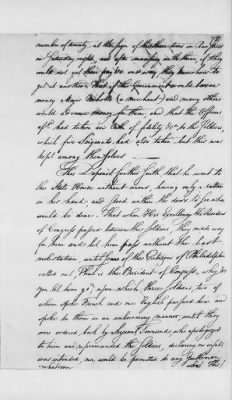 number of twenty, at the sign of the three tuns in
on Saturday night, and after
could not get their pay one way, they knew how to
get it another. That if the Government would borrow
money Major Nichols (a merchant) and many others
would advance money for them, and that the Officers
had taken an oath of fidelity &c to the soldiers,
which five Serjeants had also taken, but this was
kept among themselves.
This Deponent further saith that he went to
the State House without arms, having only a rattan
in his hand, and stood within the door to see what
would be done. That when His Excellency the President
of Congress passed between the soldiers, they made way
for him and let him pass without the least
molestation, until some of the Citizens of Philadelphia
called out, That is the President of Congress, why do
you let him go, upon which three soldiers, two of
whom spoke French and one English pursued him and
spoke to them in an unbecoming manner, until they
were ordered back by Serjeant Townsend who apologized
to him and reprimanded the soldiers, declaring no insult
was intended, nor would be permitted to any Gentleman
whatsoever.